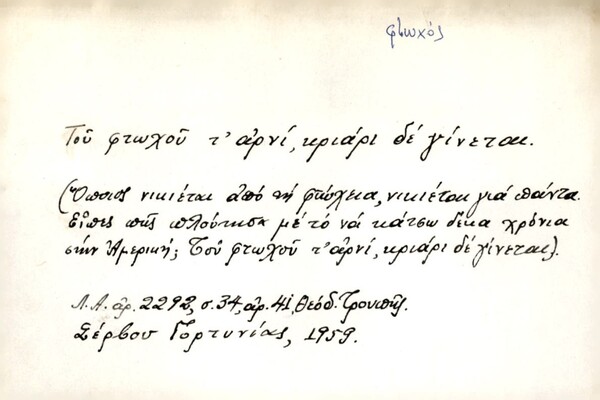 φτωχός
Τοῦ φτωχοῦ τ' ἀρνί, κριάρι δέ γίνεται.
(Ὅποιος νικιέται ἀπό τή φτώχεια, νικιέται γιά πάντα.
Εἶπες πῶς πλούτησα μέ τό νά κάτσω δέκα χρόνια
στήν Ἀμερική; Τοῦ φτωχοῦ τ' ἀρνί, κριάρι δέ γίνεται).
Λ.Α. ἀρ. 2292, σ. 34, ἀρ. 41, Θεόδ. Τρουπῆς.
Σέρβου Γορτυνίας, 1959.